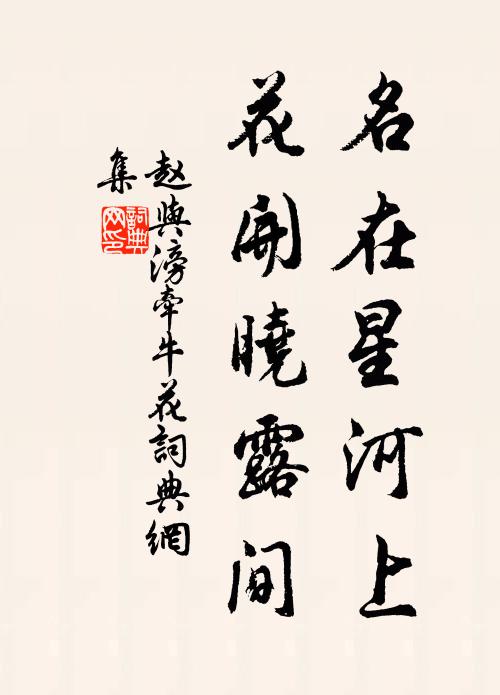 名在星河上
花開曉露間
赵與滂牽牛花詞典網
集
詞典
网印